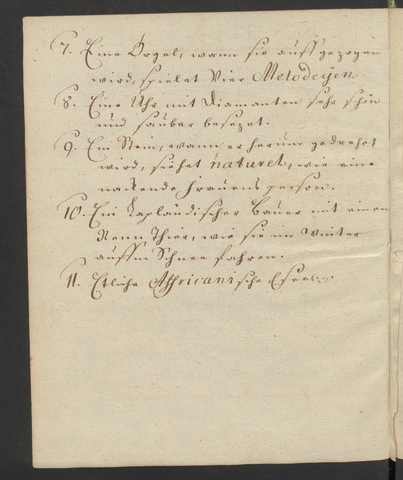 7. Eine Orgel, wann sie auffgezogen
wird, spielet Vier Melodeyen
8. Eine Uhr mit Diamanten sehr schön
und sauber besezet.
9. Ein Stein, wann er herum gedrehet
wird, siehet naturel, wie eine
nackende Frauens person.
10. Ein Laplandischer Bauer mit einem
Renn Thier, wie sie im Winter
auffm Schnee fahren.
11. Etliche Affricanische Esel